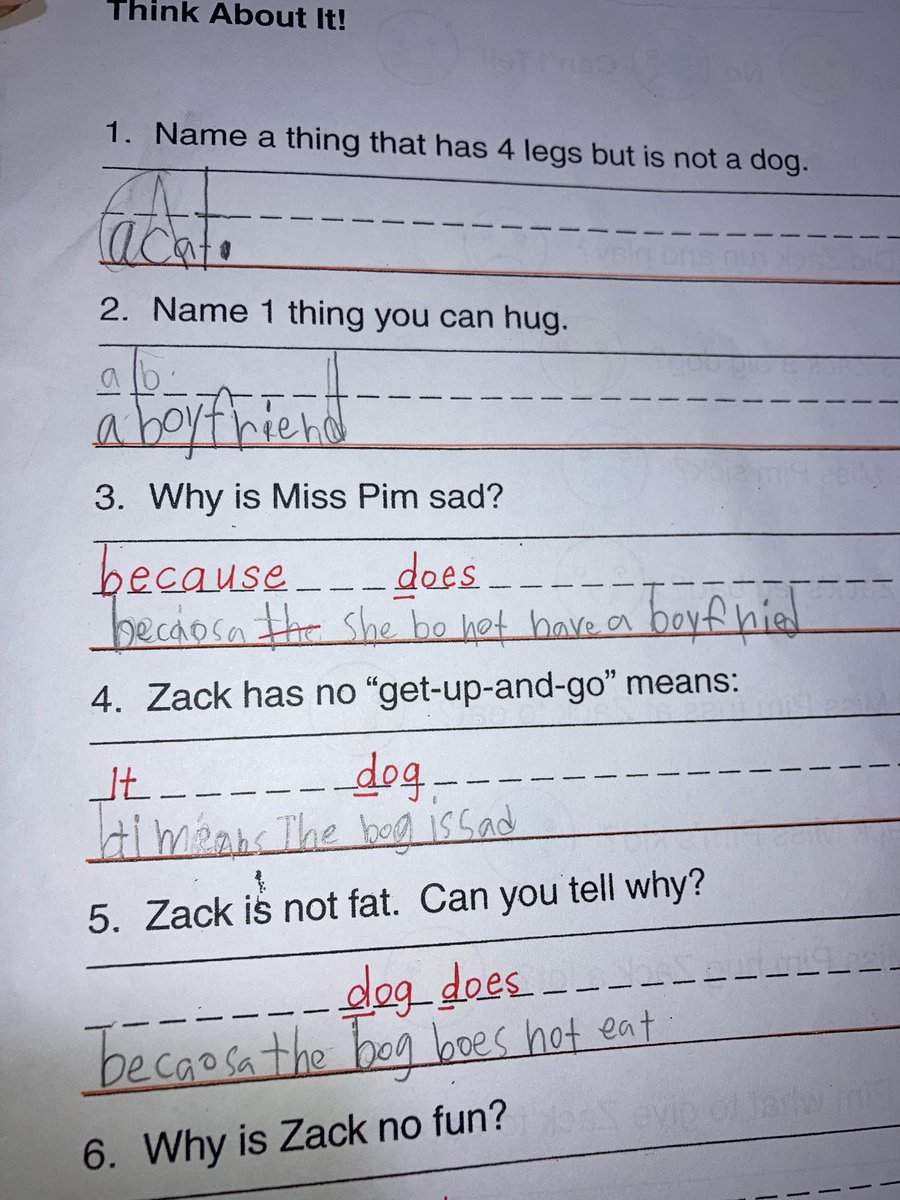 Think About It!
1. Name a thing that has 4 legs but is not a dog.
a cat.
2. Name 1 thing you can hug.
a b
a boyfriend
3. Why is Miss Pim sad?
because does
becaosa the She bo not have a boyfhied
4. Zack has no “get-up-and-go” means:
It dog
Hi means The bog is sad
5. Zack is not fat. Can you tell why?
dog does
becaosa the bog boes not eat
6. Why is Zack no fun?